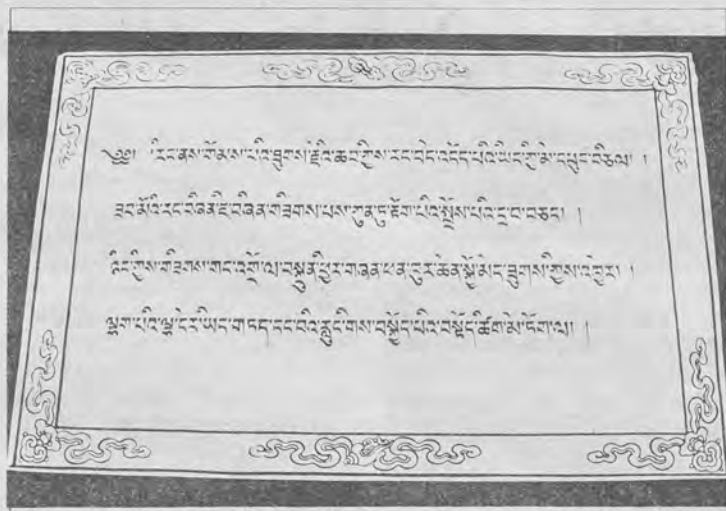 ༄༅༅། །རིང་ནས་གོམས་པའི་ཐུགས་རྗེའི་ཆབ་ཀྱིས་རང་བདེ་འདོད་པའི་ཡིད་ཀྱི་མེ་དཔུང་བཅིལ། །
ཟབ་མོའི་རང་བཞིན་ཇི་བཞིན་གཟིགས་པས་ཀུན་ཏུ་རྟོག་པའི་སྤྲོས་པའི་དྲ་བ་བཅད། །
ཉིང་གྱིས་གཟིགས་གང་འགྲོ་ལ་བསྟུན་ཕྱིར་གཞན་ཕན་དུར་ཆེན་སྐྱོ་མེད་ཐུགས་ཀྱིས་འཁྱེར། །
ལྷག་པའི་ལྷ་དེར་ཡིད་གཏད་དང་བའི་རླུང་གིས་བསྐྱོད་པའི་བསྟོད་ཚིག་མེ་ཏོག་ལ། །